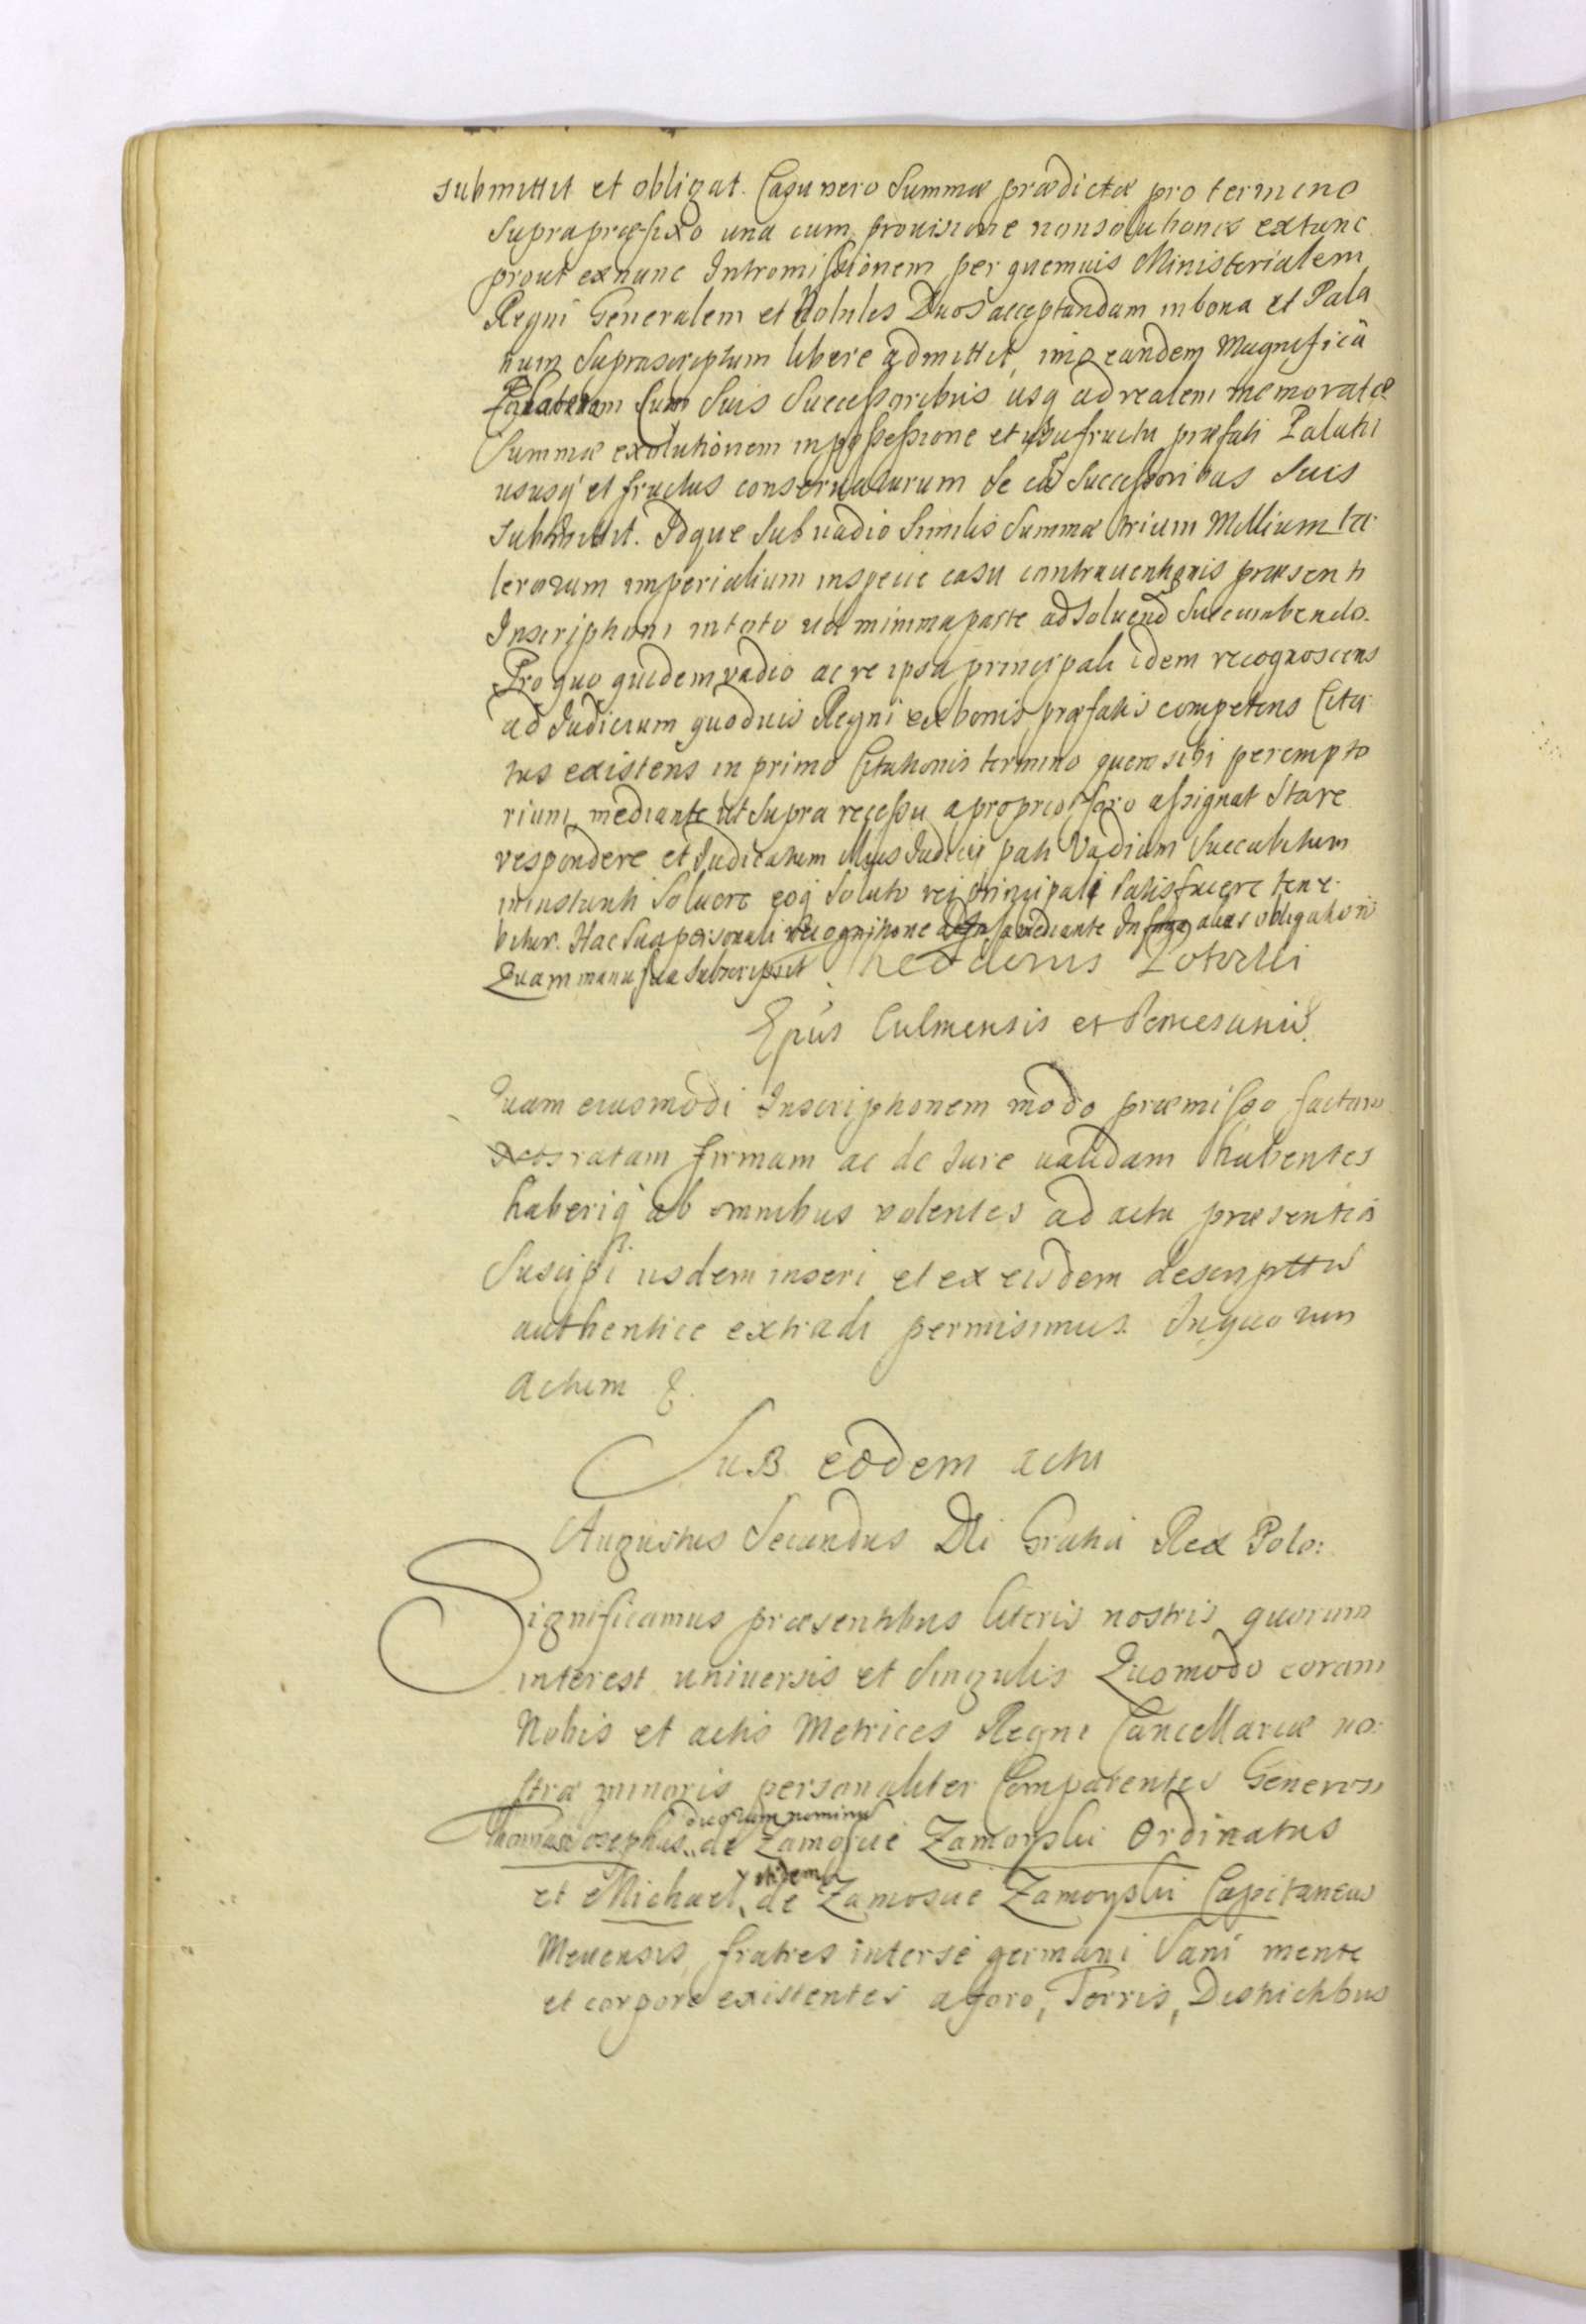 submittit et obligat. Casu vero Summæ prædictæ pro termino
Supra præfixo una cum provisione non solutionis extunc
prout exnunc Intromissionem per quemvis Ministerialem
Regni Generalem et Nobiles Duos acceptandam in bona et Pala
tium Suprascriptum libere admittet, imo eandem Magnificā
cum Suis Successoribus usq ad realem memoratæ
Summæ exolutionem in possessione et usufructu præfati Palatii
ususq et fructus conservaturum se cū Successoribus Suis
Submittit. Idque Sub vadio Similis Summæ trium Millium ta-
lerorum imperialium in specie casu contraventionis præsenti
Inscriptioni in toto vel minima parte ad Solvend Succumbendo.
Pro quo quidem vadio ac re ipsa principali idem recognoscens
ad Judicium quodvis Regni ex bonis præfatis competens Cita-
tus existens in primo Citationis termino quem sibi perempto
rium mediante ut Supra recessu a proprio foro assignat Stare
respondere et Judicatum illius Judicij pati Vadium Succubitum
in instanti Solvere eoq Soluto rei principali Satisfacere tene-
bitur. Hac Sua personali recognitione mediante alias obligationis
Quam manu sua Subscripsit Theodorus Potocki
Epūs Culmensis et Pomesaniæ.
Quam eiusmodi Inscriptionem modo præmisso factam
ratam firmam ac de Jure validam habentes
haberiq ab omnibus volentes ad acta præsentia
Suscipi iisdem inseri et ex eisdem descriptis
authentice extradi permisimus. In quorum
actum &.
Sub eodem actu
Augustus Secundus Dei Gratia Rex Polo:
Significamus præsentibus literis nostris quorum
interest universis et Singulis Quomodo coram
Nobis et actis Metrices Regni Cancellariæ no-
stræ minoris personaliter Comparentes Generosi
duorum nominum
Thomas Josephus de Zamoscie Zamoyski Ordinatus
itidem
et Michael de Zamoscie Zamoyski Capitaneus
Mevensis fratres inter se germani Sani mente
et corpore existentes a foro, Terris, Districtibus